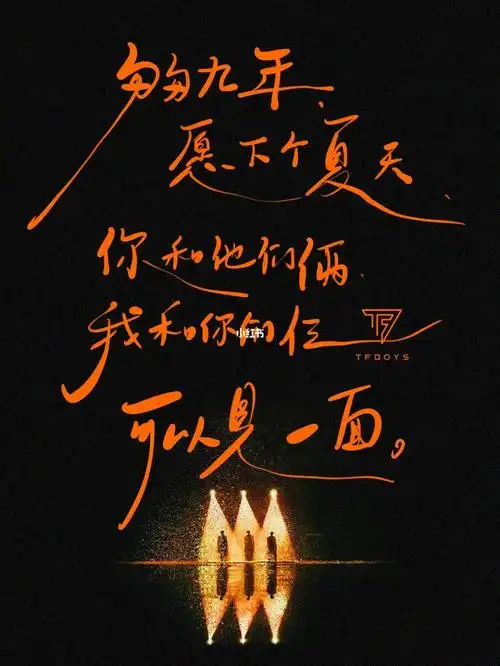 匆匆九年、
愿下个夏天、
你和他们俩、
小红书
我和你们仨
TF
TFBOYS
可以见一面。